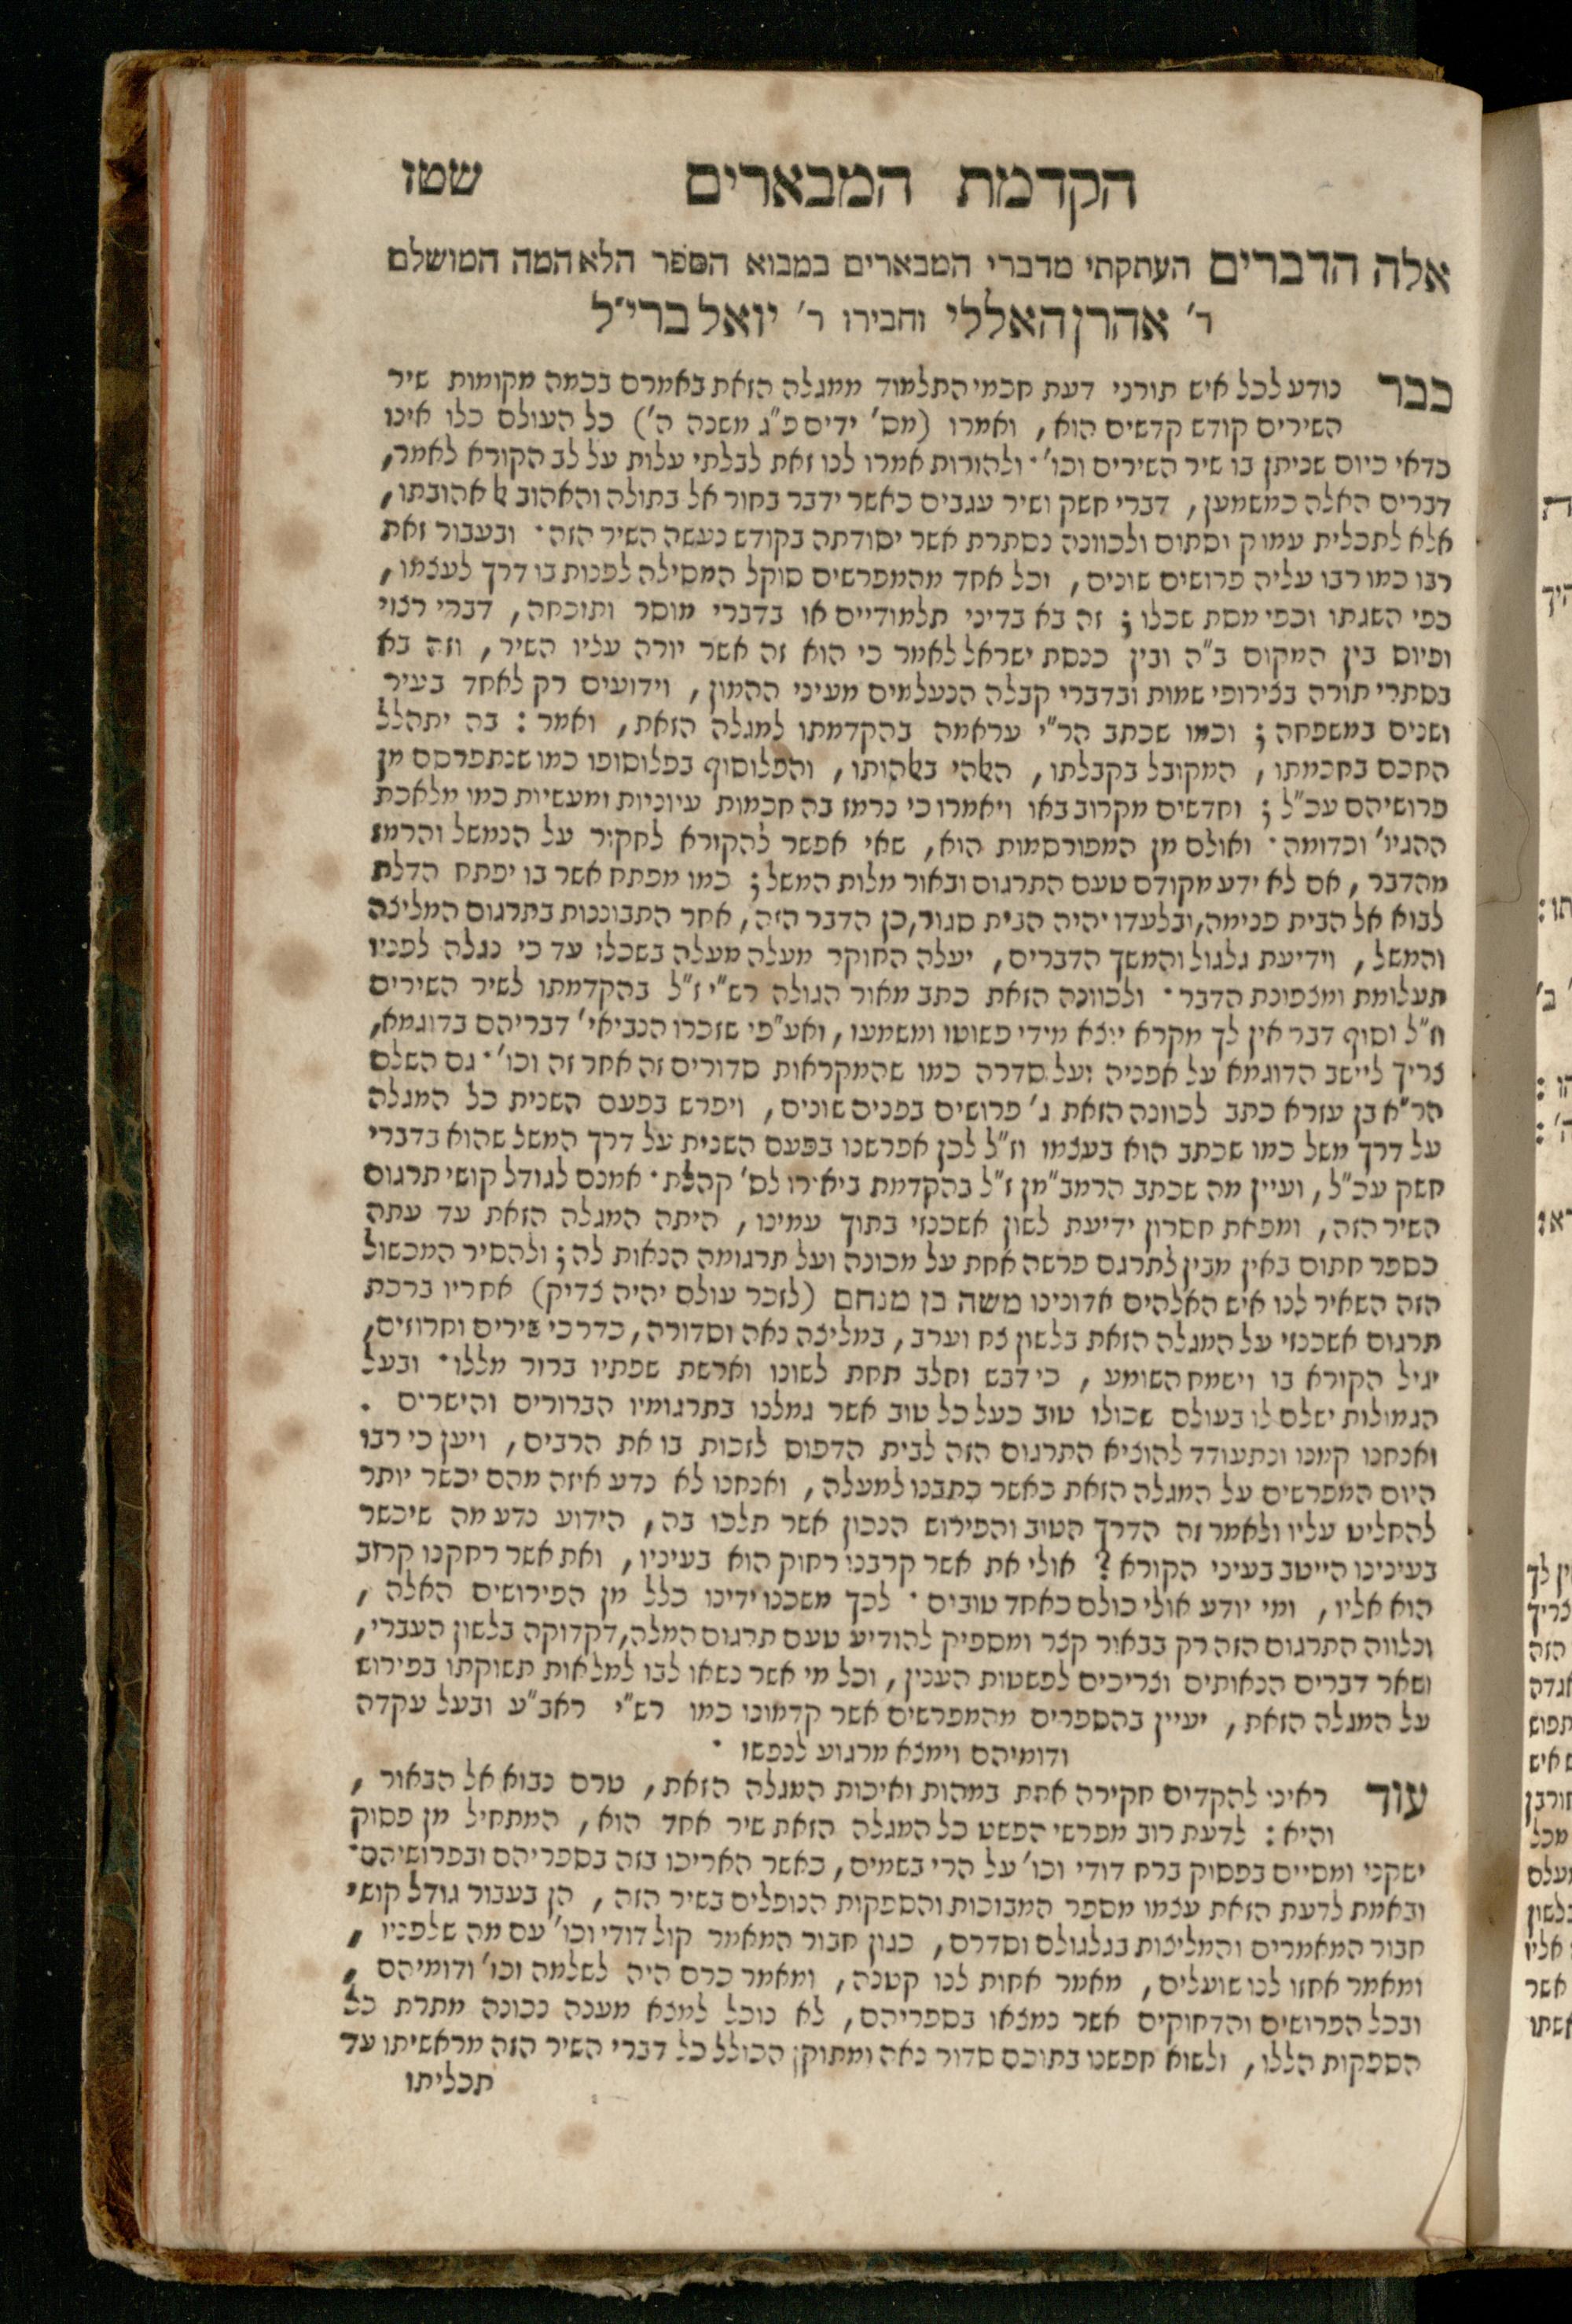 הקדמת המבארים שטז
אלה הדברים העתקתי מדברי המבארים במבוא הספר הלא המה המושלם
ר' אהרן האללי וחבירו ר' יואל ברי"ל
כבר נודע לכל איש תורני דעת חכמי התלמוד ממגלה הזאת באמרם בכמה מקומות שיר
השירים קודש קדשים הוא, ואמרו (מס' ידים פ"ג משנה ה') כל העולם כלו אינו
כדאי כיום שניתן בו שיר השירים וכו'· ולהורות אמרו לנו זאת לבלתי עלות על לב הקורא לאמר,
דברים האלה כמשמען, דברי חשק ושיר עגבים כאשר ידבר בחור אל בתולה והאהוב אל אהובתו,
אלא לתכלית עמוק וסתום ולכוונה נסתרת אשר יסודתה בקודש נעשה השיר הזה· ובעבור זאת
רבו כמו רבו עליה פרושים שונים, וכל אחד מהמפרשים סוקל המסילה לפנות בו דרך לעצמו,
כפי השגתו וכפי מסת שכלו; זה בא בדיני תלמודיים או בדברי מוסר ותוכחה, דברי רצוי
ופיוס בין המקום ב"ה ובין כנסת ישראל לאמר כי הוא זה אשר יורה עליו השיר, וזה בא
בסתרי תורה בצירופי שמות ובדברי קבלה הנעלמים מעיני ההמון, וידועים רק לאחד בעיר
ושנים במשפחה; וכמו שכתב הר"י עראמה בהקדמתו למגלה הזאת, ואמר: בה יתהלל
החכם בחכמתו, המקובל בקבלתו, האלהי באלהותו, והפלוסוף בפלוסופו כמו שנתפרסם מן
פרושיהם עכ"ל; וחדשים מקרוב באו ויאמרו כי נרמז בה חכמות עיוניות ומעשיות כמו מלאכת
ההגיו' וכדומה· ואולם מן המפורסמות הוא, שאי אפשר להקורא לחקור על הנמשל והרמז
מהדבר, אם לא ידע מקודם טעם התרגום ובאור מלות המשל; כמו מפתח אשר בו יפתח הדלת
לבוא אל הבית פנימה, ובלעדו יהיה הבית סגור, כן הדבר הזה, אחר התבוננות בתרגום המליצה
והמשל, וידיעת גלגול והמשך הדברים, יעלה החוקר מעלה מעלה בשכלו עד כי נגלה לפניו
תעלומת ומצפונת הדבר· ולכוונה הזאת כתב מאור הגולה רש"י ז"ל בהקדמתו לשיר השירים
ח"ל וסוף דבר אין לך מקרא יוצא מידי פשוטו ומשמעו, ואע"פי שזכרו הנביאי' דבריהם בדוגמא,
צריך ליישב הדוגמא על אפניה ועל סדרה כמו שהמקראות סדורים זה אחר זה וכו'· גם השלם
הר"א בן עזרא כתב לכוונה הזאת ג' פרושים בפנים שונים, ויפרש בפעם השנית כל המגלה
על דרך משל כמו שכתב הוא בעצמו וז"ל לכן אפרשנו בפעם השנית על דרך המשל שהוא בדברי
חשק עכ"ל, ועיין מה שכתב הרמב"מן ז"ל בהקדמת ביאירו לס' קהלת· אמנם לגודל קושי תרגום
השיר הזה, ומפאת חסרון ידיעת לשון אשכנזי בתוך עמינו, היתה המגלה הזאת עד עתה
כספר חתום באין מבין לתרגם פרשה אחת על מכונה ועל תרגומה הנאות לה; ולהסיר המכשול
הזה השאיר לנו איש האלהים אדונינו משה בן מנחם (לזכר עולם יהיה צדיק) אחריו ברכת
תרגום אשכנזי על המגלה הזאת בלשון צח וערב, במליצה נאה וסדורה, כדרכי שירים וחרוזים,
יגיל הקורא בו וישמח השומע, כי דבש וחלב תחת לשונו וארשת שפתיו ברור מללו· ובעל
הגמולות ישלם לו בעולם שכולו טוב כעל כל טוב אשר גמלנו בתרגומיו הברורים והישרים .
ואנחנו קמנו ונתעודד להוציא התרגום הזה לבית הדפוס לזכות בו את הרבים, ויען כי רבו
היום המפרשים על המגלה הזאת כאשר כתבנו למעלה, ואנחנו לא נדע איזה מהם יכשר יותר
להחליט עליו ולאמר זה הדרך הטוב והפירוש הנכון אשר תלכו בה, הידוע נדע מה שיכשר
בעינינו הייטב בעיני הקורא? אולי את אשר קרבנו רחוק הוא בעיניו, ואת אשר רחקנו קרוב
הוא אליו, ומי יודע אולי כולם כאחד טובים· לכך משכנו ידינו כלל מן הפירושים האלה,
ונלווה התרגום הזה רק בבאור קצר ומספיק להודיע טעם תרגום המלה, דקדוקה בלשון העברי,
ושאר דברים הנאותים וצריכים לפשטות הענין, וכל מי אשר נשאו לבו למלאות תשוקתו בפירוש
על המגלה הזאת, יעיין בהספרים מהמפרשים אשר קדמונו כמו רש"י ראב"ע ובעל עקדה
ודומיהם וימצא מרגוע לנפשו ·
עוד ראיני להקדים חקירה אחת במהות ואיכות המגלה הזאת, טרם נבוא אל הבאור,
והיא: לדעת רוב מפרשי הפשט כל המגלה הזאת שיר אחד הוא, המתחיל מן פסוק
ישקני ומסיים בפסוק ברח דודי וכו' על הרי בשמים, כאשר האריכו בזה בספריהם ובפרושיהם·
ובאמת לדעת הזאת עצמו מספר המבוכות והספקות הנופלים בשיר הזה, הן בעבור גודל קושי
חבור המאמרים והמליצות בגלגולם וסדרם, כגון חבור המאמר קול דודי וכו' עם מה שלפניו,
ומאמר אחזו לנו שועלים, מאמר אחות לנו קטנה, ומאמר כרם היה לשלמה וכו' ודומיהם,
ובכל הפרושים והדחוקים אשר נמצאו בספריהם, לא נוכל למצא מענה נכונה מתרת כל
הספקות הללו, ולשוא חפשנו בתוכם סדור נאה ומתוקן הכולל כל דברי השיר הזה מראשיתו עד
תכליתו